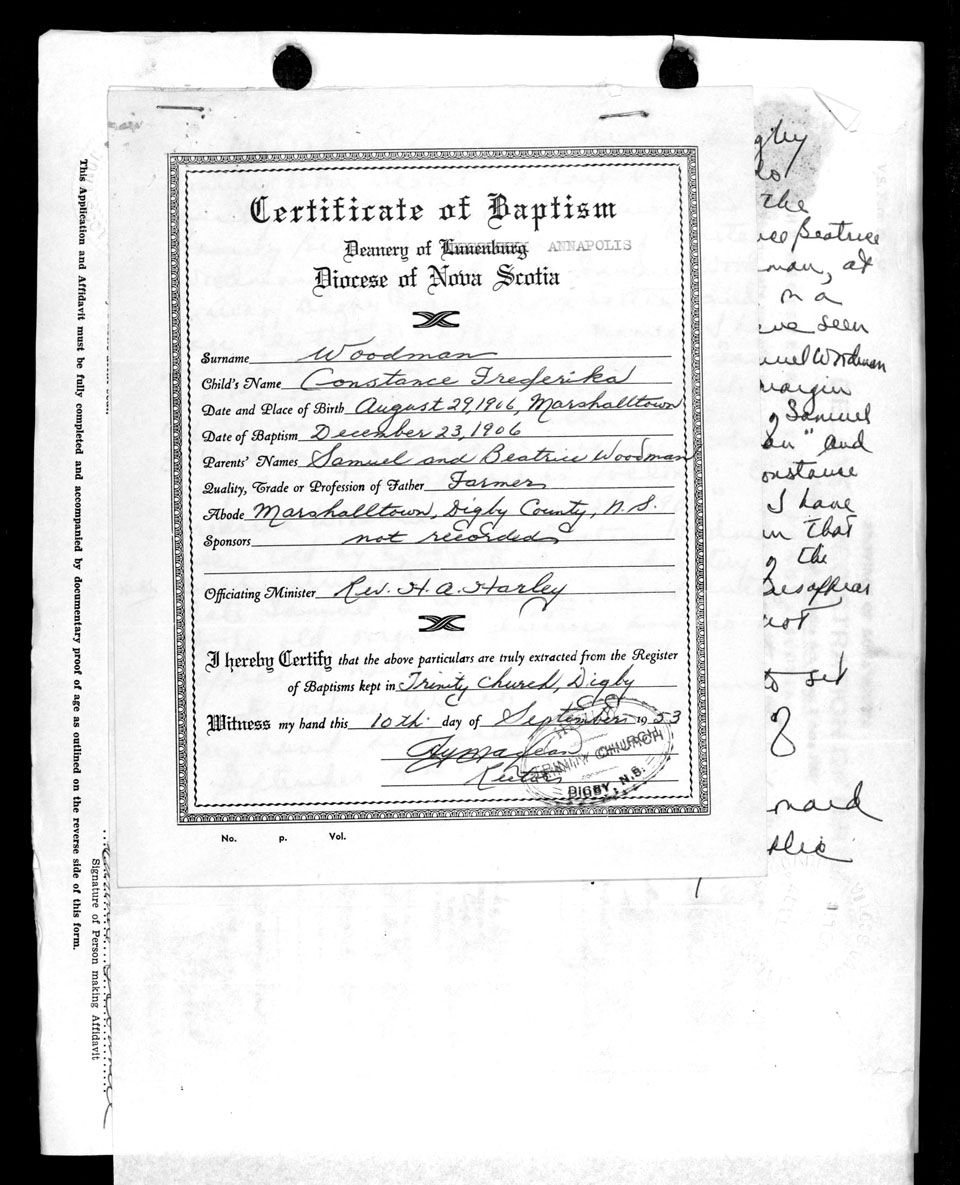 Certificate of Baptism
Deanery of Lunenburg ANNAPOLIS
Diocese of Nova Scotia
Surname Woodman
Child's Name Constance Frederika
Date and Place of Birth August 29, 1906, Marshalltown
Date of Baptism December 23, 1906
Parents' Names Samuel and Beatrice Woodman
Quality, Trade or Profession of Father Farmer
Abode Marshalltown, Digby County, N.S.
Sponsors not recorded
Officiating Minister Rev. H. A. Harley
I hereby Certify that the above particulars are truly extracted from the Register
of Baptisms kept in Trinity Church, Digby
Witness my hand this 10th. day of September 1953
Rector
TRINITY CHURCH
DIGBY, N.S.
No. p. Vol.
This Application and Affidavit must be fully completed and accompanied by documentary proof of age as outlined on the reverse side of this form.
Signature of Person making Affidavit
the
Beatrice
man, at
seen
Woodman
margin
Samuel
and
I have
that
the
to set